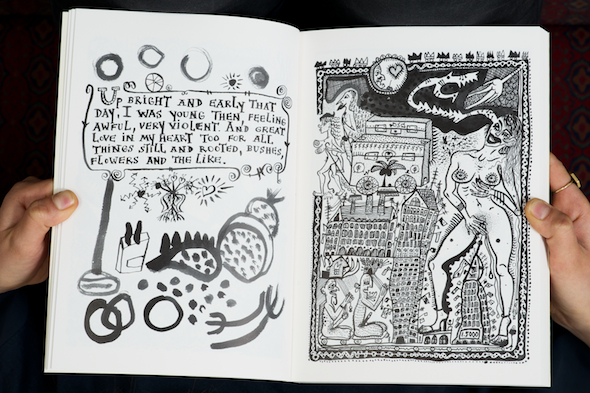 UP BRIGHT AND EARLY THAT
DAY, I WAS YOUNG THEN, FEELING
AWFUL, VERY VIOLENT. AND GREAT
LOVE IN MY HEART TOO FOR ALL
THINGS STILL AND ROOTED, BUSHES,
FLOWERS AND THE LIKE.